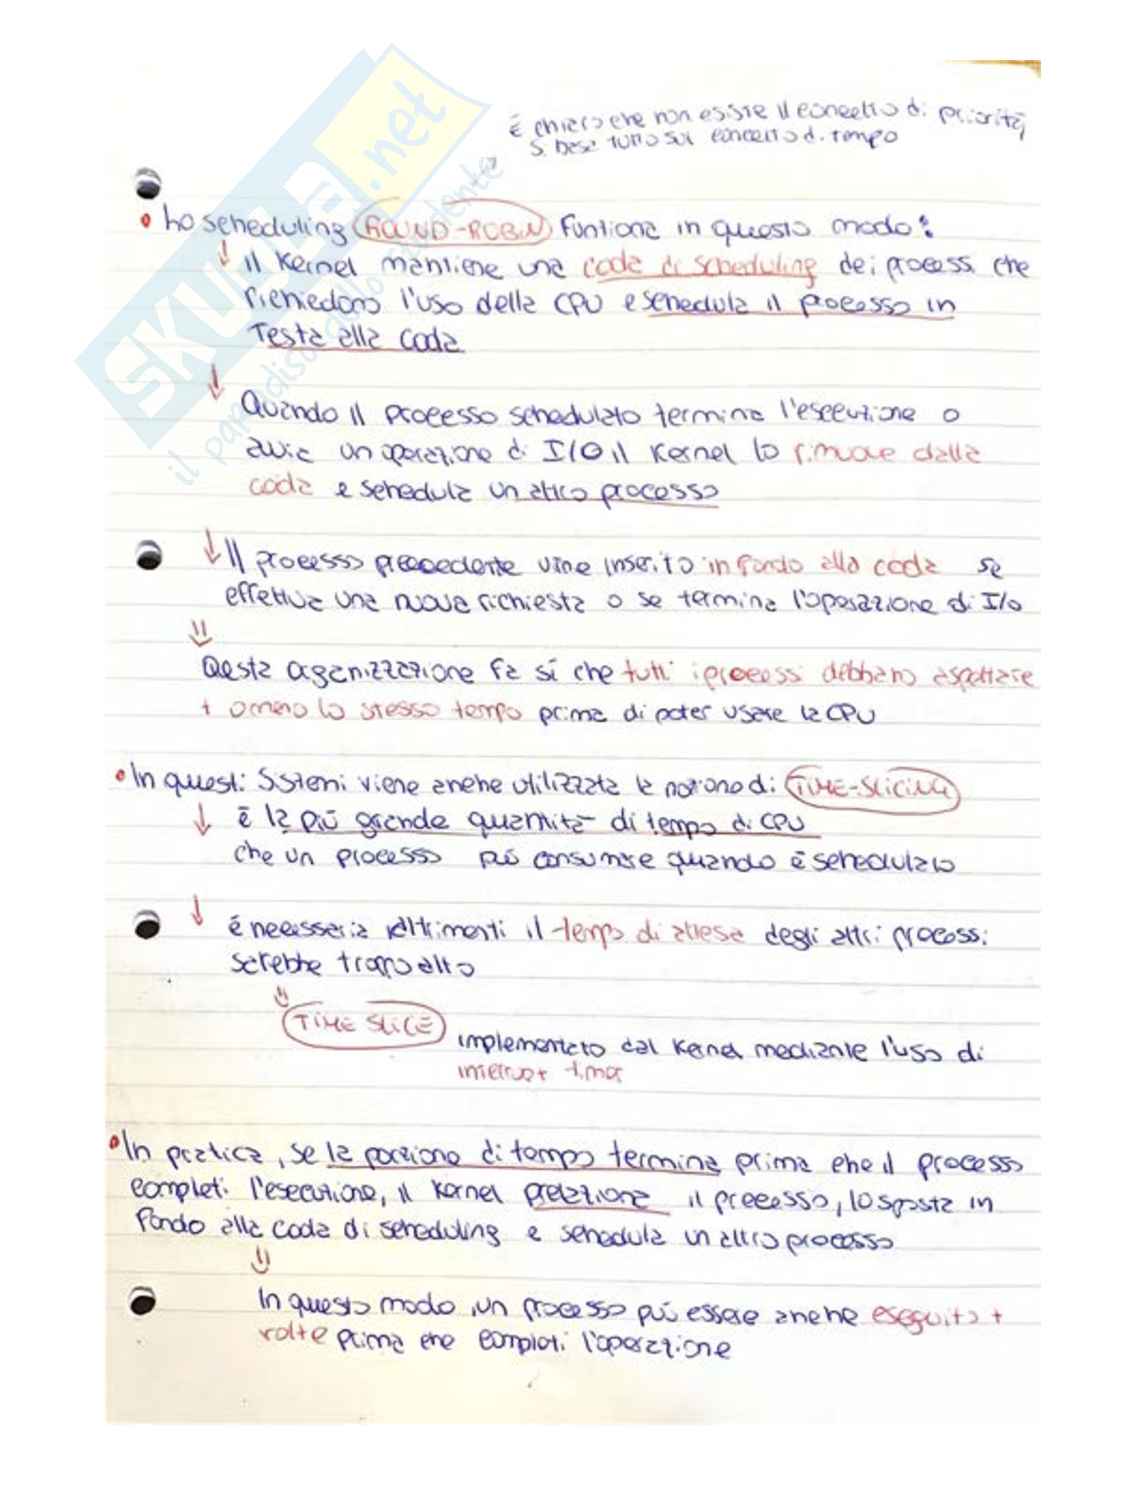 È chiaro che non esiste il concetto di priorità,
si basa tutto sul concetto di tempo
SKUOLA.net
il paradiso dello studente
• Lo scheduling ROUND-ROBIN funziona in questo modo:
↓ il Kernel mantiene una coda di scheduling dei processi che
richiedono l'uso della CPU e schedula il processo in
Testa alla coda
↓ Quando il processo schedulato termina l'esecuzione o
avvia un operazione di I/O il Kernel lo rimuove dalla
coda e schedula un altro processo
↓ Il processo precedente vine inserito in fondo alla coda se
effettua una nuova richiesta o se termina l'operazione di I/O
⇓
Qesta organizzazione fa sí che tutti i processi debbano aspettare
+ o meno lo stesso tempo prima di poter usare la CPU
• In questi Sistemi viene anche utilizzata la nozione di TIME-SLICING
↓ è la più grande quantità di tempo di CPU
che un processo può consumare quando è schedulato
↓ é necessaria altrimenti il tempo di attesa degli altri processi
sarebbe troppo alto
⇓
TIME SLICE implementato dal Kernel mediante l'uso di
interrupt timer
• In pratica, se la porzione di tempo termina prima che il processo
completi l'esecuzione, il Kernel prelaziona il processo, lo sposta in
fondo alla coda di scheduling e schedula un altro processo
⇓
In questo modo un processo può essere anche eseguito +
volte prima che completi l'operazione